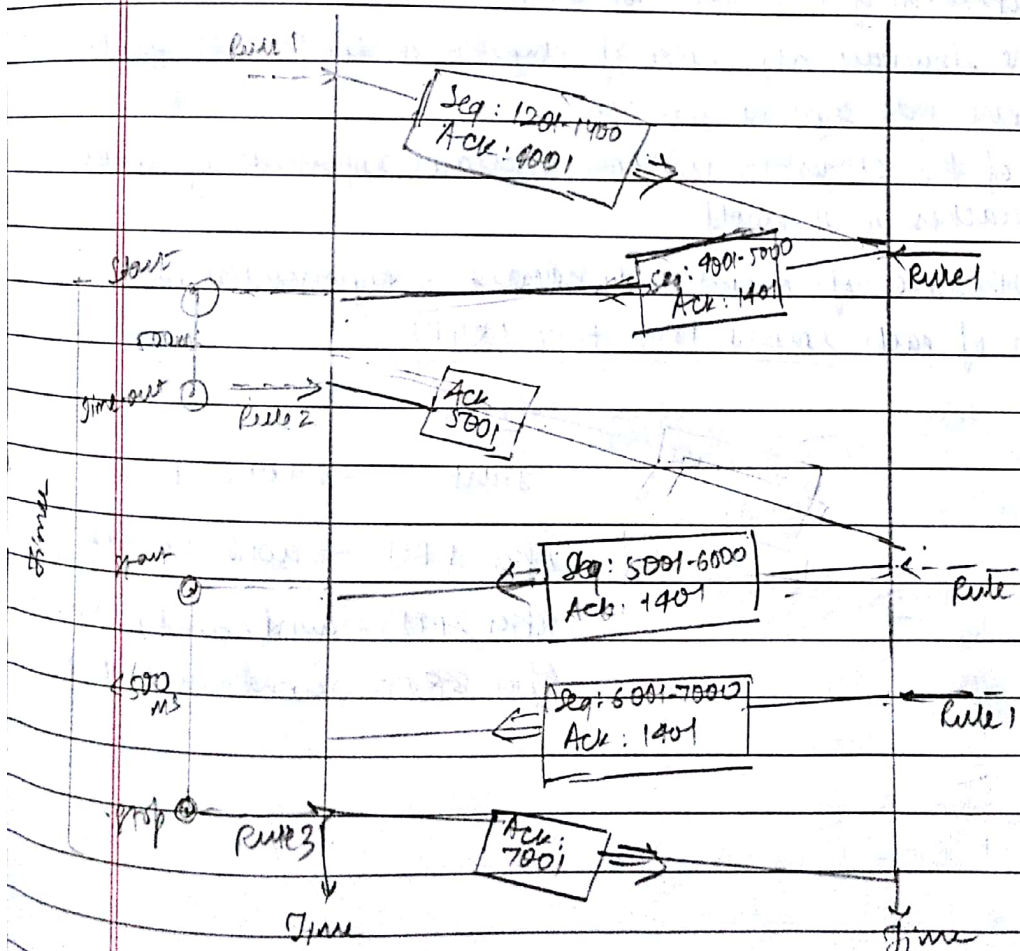 Rule 1
Seq: 1201-1400
Ack: 4001
Start
Seq: 4001-5000
Ack: 1401
Rule 1
500ms
Time out
Rule 2
Ack
5001
Timer
Start
Seq: 5001-6000
Ack: 1401
Rule
<500
ms
Seq: 6001-7000
Ack: 1401
Rule 1
Stop
Rule 3
Ack:
7001
Time
Time